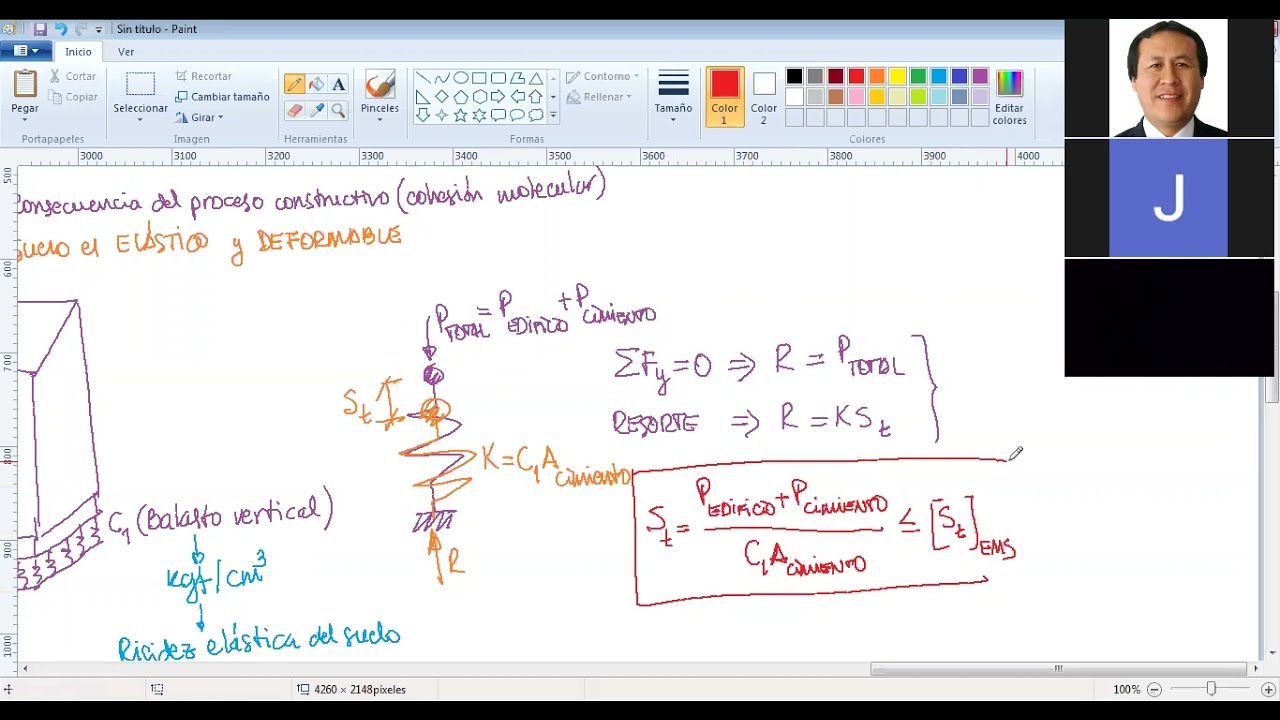 Sin título - Paint
Inicio
Ver
Pegar
Cortar
Copiar
Portapapeles
Seleccionar
Recortar
Cambiar tamaño
Girar
Imagen
Herramientas
Pinceles
Formas
Contorno
Rellenar
Tamaño
Color 1
Color 2
Editar colores
Colores
3000 3100 3200 3300 3400 3500 3600 3700 3800 3900 4000
500
600
700
800
900
1000
consecuencia del proceso constructivo (cohesión molecular)
suelo el ELÁSTICO y DEFORMABLE
P_TOTAL = P_EDIFICIO + P_cimiento
S_t
K = C_1 A_cimiento
R
ΣF_y = 0 ⇒ R = P_TOTAL
RESORTE ⇒ R = K S_t
S_t = (P_EDIFICIO + P_CIMIENTO) / (C_1 A_CIMIENTO) ≤ [S_t]_EMS
C_1 (Balasto vertical)
kgf/cm³
Rigidez elástica del suelo
J
4260 × 2148píxeles
100%